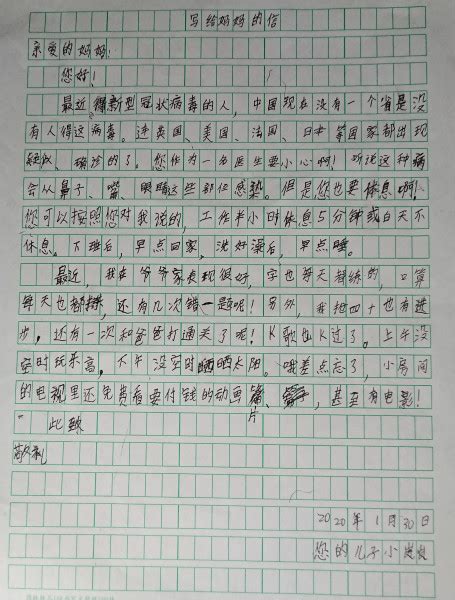 写给妈妈的信
亲爱的妈妈:
您好!
最近得新型冠状病毒的人,中国现在没有一个省是没
有人得这病毒。连英国、美国、法国、日本等国家都出现
疑似、确诊的了。您作为一名医生要小心啊!听说这种病
会从鼻子、嘴、眼睛这些部位感染。但是您也要休息啊!
您可以按照您对我说的,工作半小时休息5分钟或白天不
休息。下班后,早点回家,洗好澡后,早点睡。
最近,我在爷爷家表现很好,字也每天都练的,口算
每天也都,还有几次错一题呢!另外,我把四十也有进
步,还有一次和爸爸打通关了呢!K歌也K过了。上午没
空时玩乐高,下午没空时晒晒太阳。哦差点忘了,小房间
的电视里还免费看要付钱的动画片、,甚至有电影!
此致
敬礼
2020年1月30日
您的儿子小